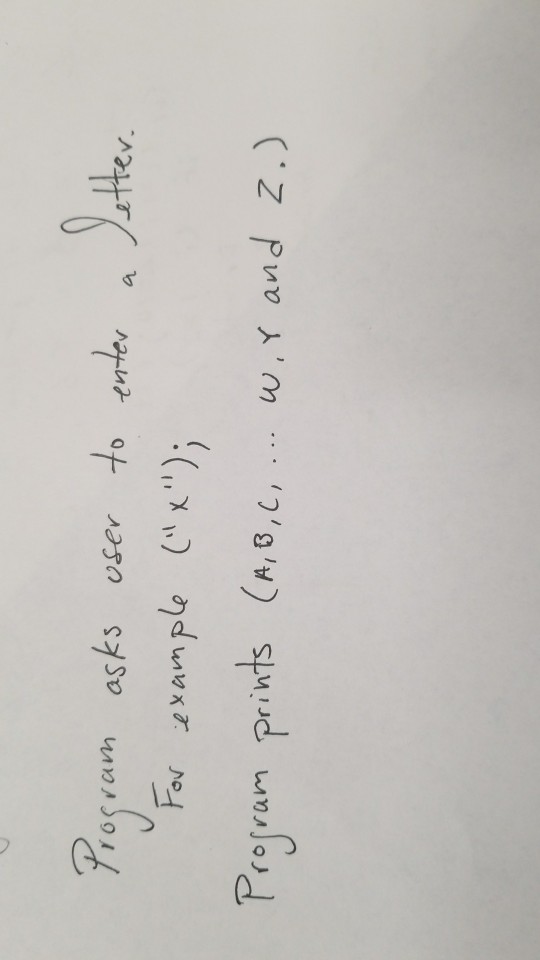 Program asks user to enter a letter.
For example ("x");
Program prints (A,B,C, ... W,Y and Z.)